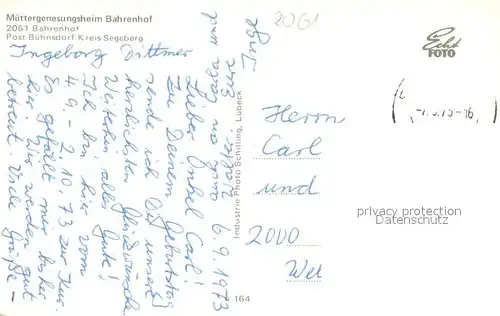 Müttergenesungsheim Bahrenhof
2061 Bahrenhof
Post Bühnsdorf Kreis Segeberg
Ingeborg Dittmer
2061
6.9.1973
Lieber Onkel Carl!
Zu Deinem Geburtstag
sende ich Dir unsere
herzlichsten Glückwünsche
Weiterhin alles Gute!
Ich bin hier vom
4.9. - 2.10.73 zur Kur.
Es gefällt mir bisher
hier. Wir werden gut
betreut. Viele
Grüße -
Eure
Inge
Industrie Photo Schilling, Lübeck
164
Echt
FOTO
Herrn
Carl
und
2000
Wed
privacy protection
Datenschutz